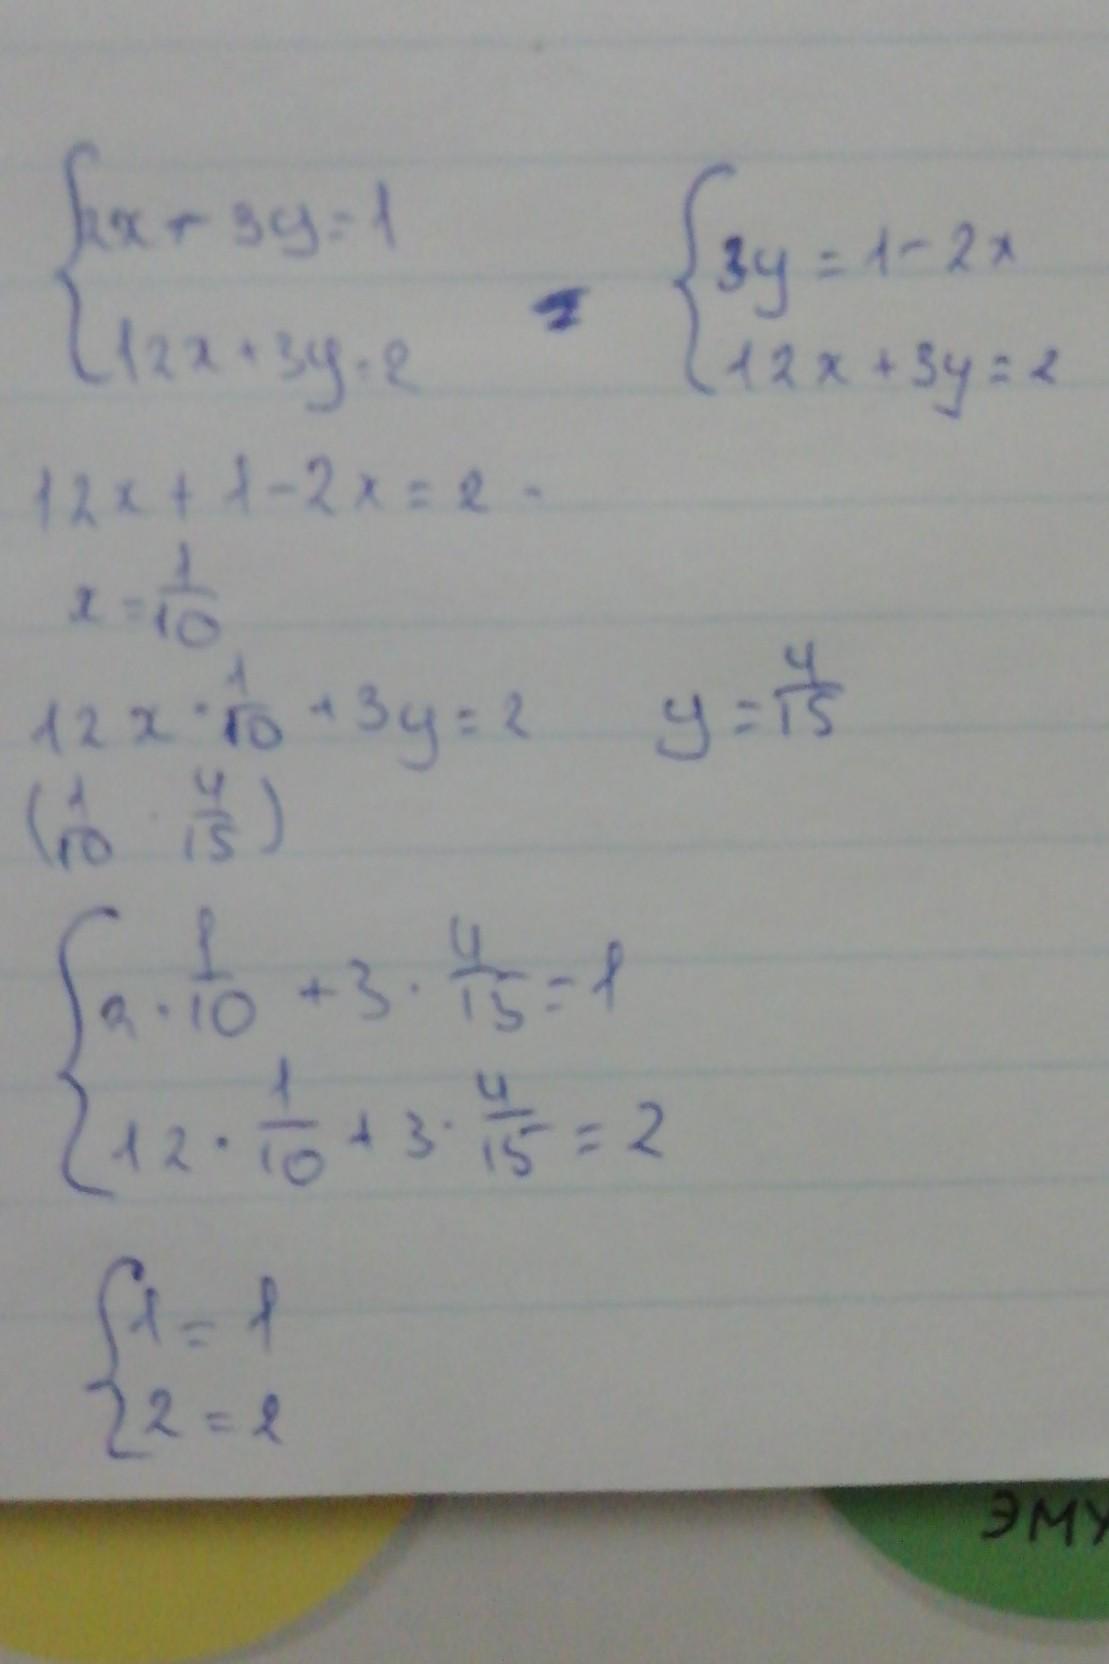 {2x + 3y = 1
{12x + 3y = 2
{3y = 1 - 2x
{12x + 3y = 2
12x + 1 - 2x = 2
x = 1/10
12x · 1/10 + 3y = 2 y = 4/15
(1/10 · 4/15)
{2 · 1/10 + 3 · 4/15 = 1
{12 · 1/10 + 3 · 4/15 = 2
{1 = 1
{2 = 2